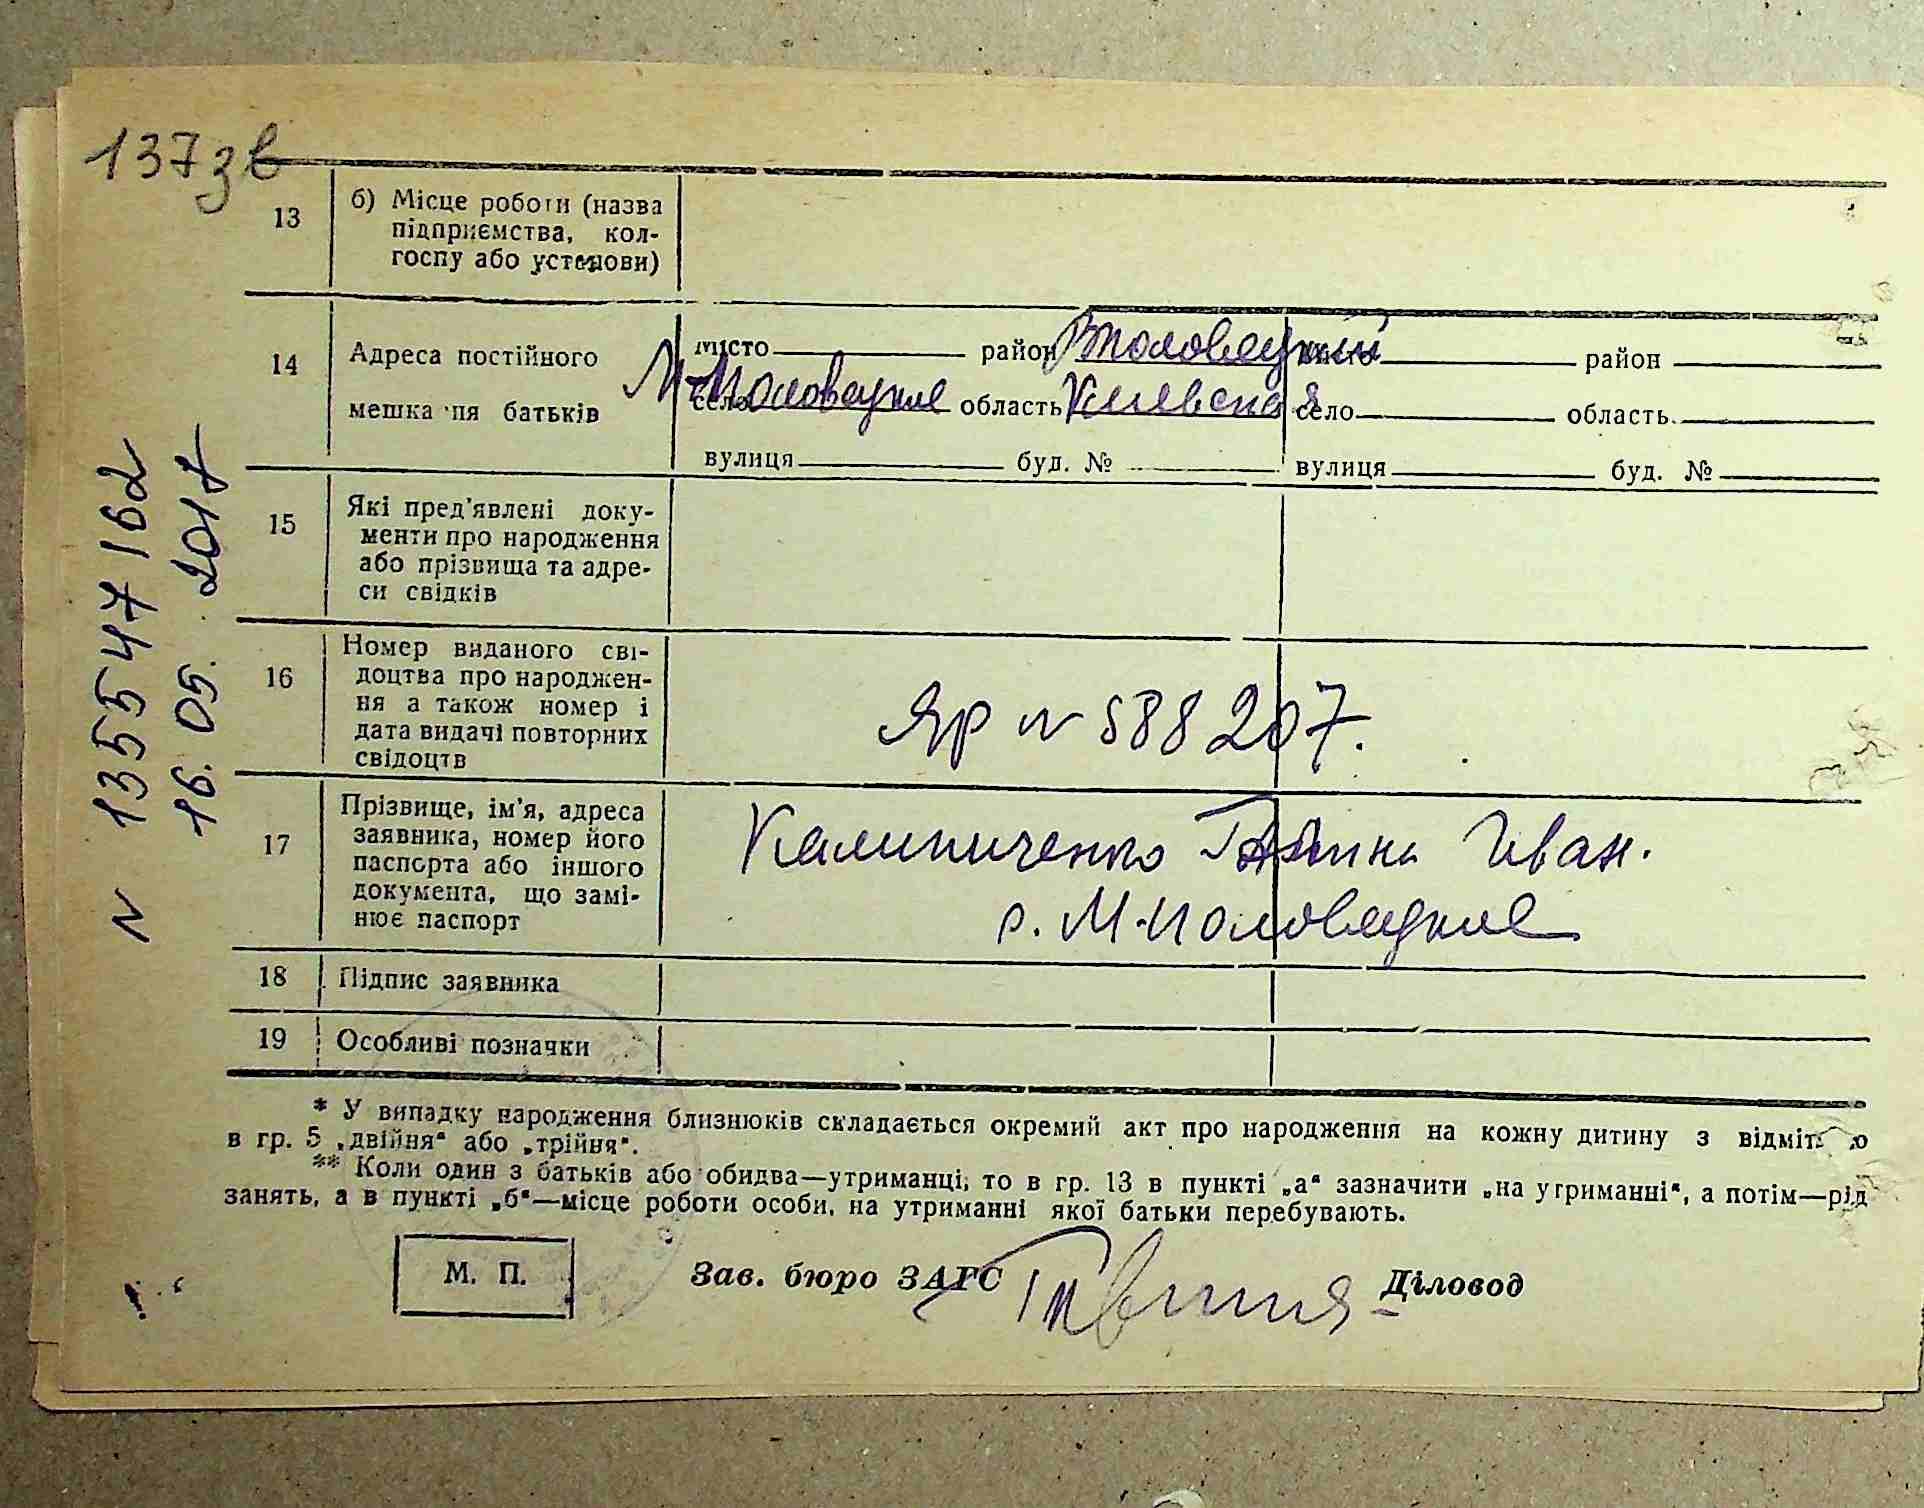 137зв
13 б) Місце роботи (назва
підприємства, кол-
госпу або установи)
14 Адреса постійного
мешкання батьків
місто район В Половецкий місто район
М-Половецкое село область Киевская село область
вулиця буд. № вулиця буд. №
15 Які пред'явлені доку-
менти про народження
або прізвища та адре-
си свідків
16 Номер виданого сві-
доцтва про народжен-
ня а також номер і
дата видачі повторних
свідоцтв
ЯР N 588207.
17 Прізвище, ім'я, адреса
заявника, номер його
паспорта або іншого
документа, що замі-
нює паспорт
Калиниченко Иван.
с. М-Половецкое
18 Підпис заявника
19 Особливі позначки
* У випадку народження близнюків складається окремий акт про народження на кожну дитину з відміткою
в гр. 5 „двійня“ або „трійня“.
** Коли один з батьків або обидва—утриманці, то в гр. 13 в пункті „а“ зазначити „на утриманні“, а потім—рід
занять, а в пункті „б“—місце роботи особи, на утриманні якої батьки перебувають.
М. П. Зав. бюро ЗАГС Діловод
N 135547162
16. 05. 2017